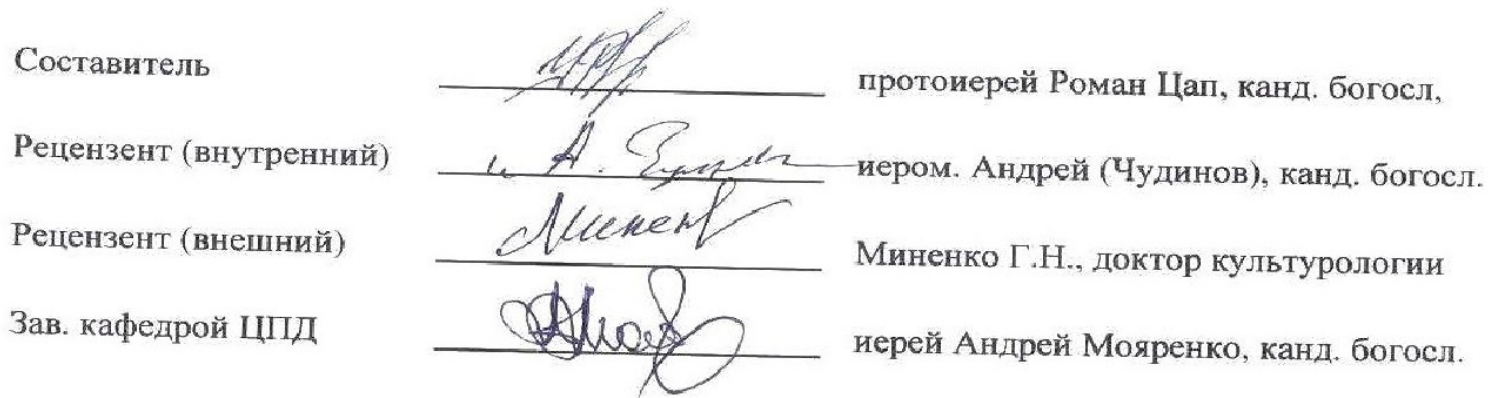 Составитель протоиерей Роман Цап, канд. богосл,
Рецензент (внутренний) и А. иером. Андрей (Чудинов), канд. богосл.
Рецензент (внешний) Миненко Г.Н., доктор культурологии
Зав. кафедрой ЦПД иерей Андрей Мояренко, канд. богосл.